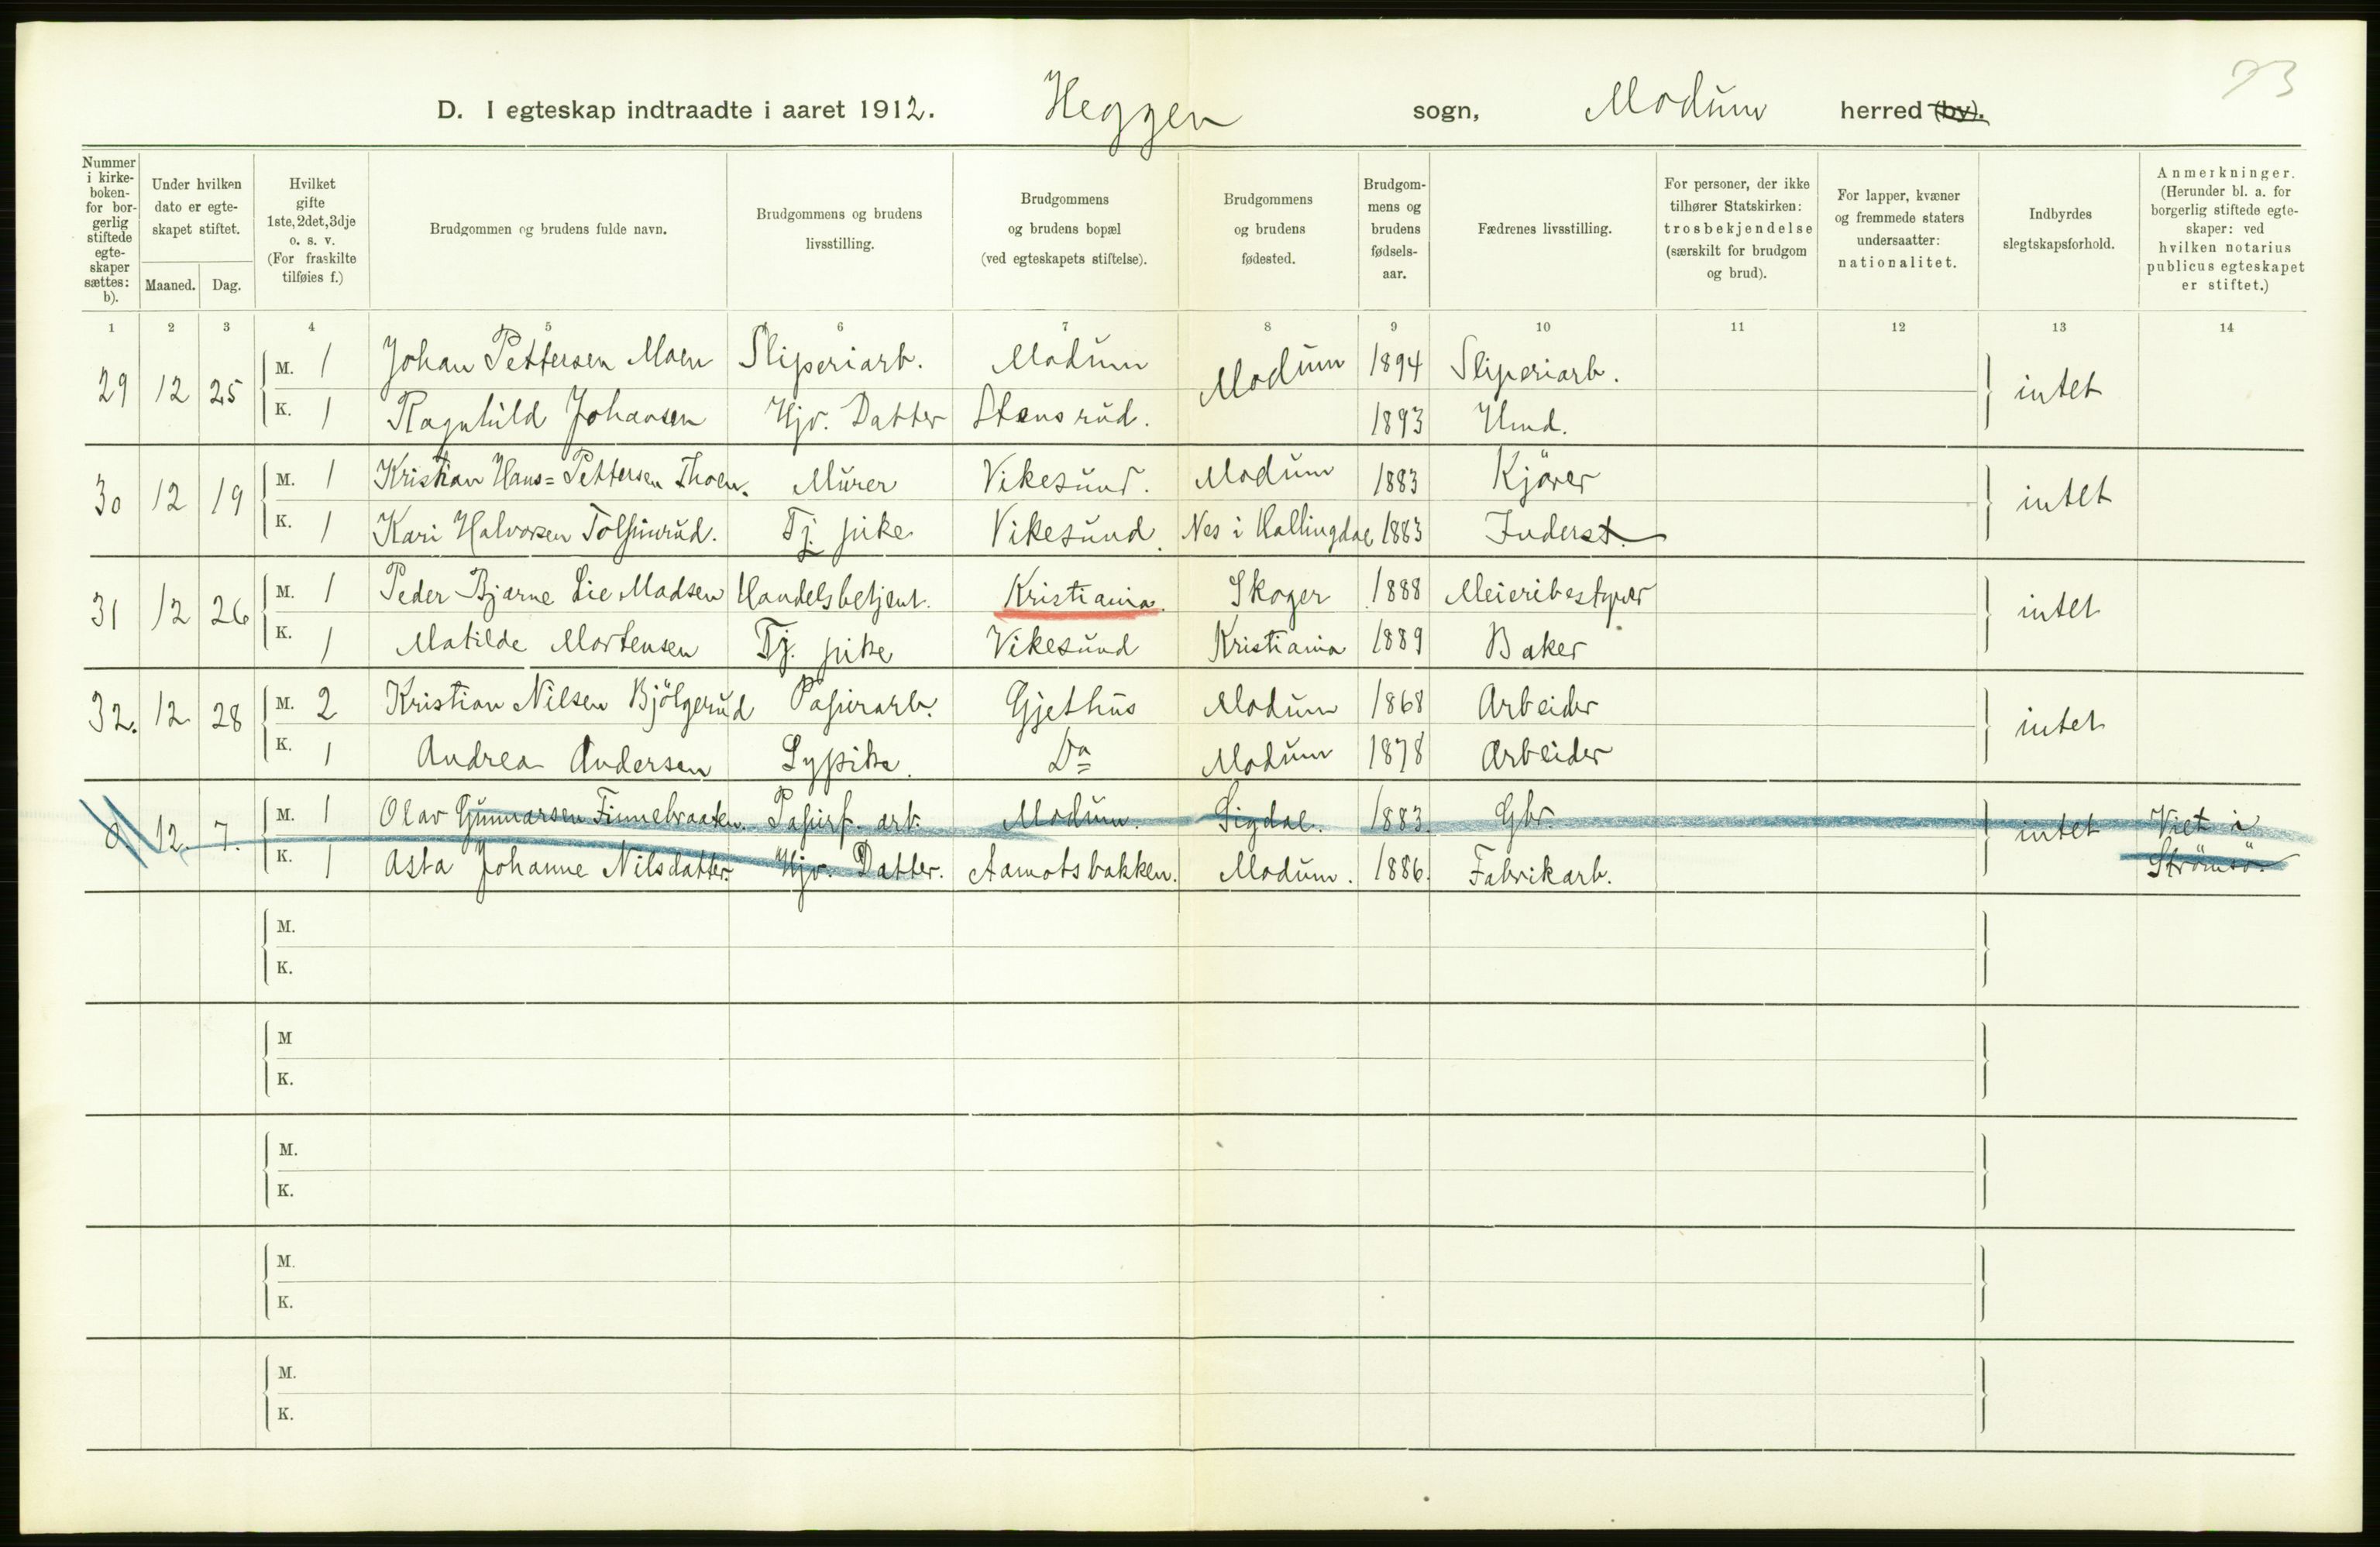 73
D. I egteskap indtraadte i aaret 1912. Heggen sogn, Modum herred (by).
Nummer i kirkeboken- for borgerlig stiftede egteskaper sættes: b).
Under hvilken dato er egteskapet stiftet.
Maaned. Dag.
Hvilket gifte 1ste, 2det, 3dje o. s. v. (For fraskilte tilføies f.)
Brudgommen og brudens fulde navn.
Brudgommens og brudens livsstilling.
Brudgommens og brudens bopæl (ved egteskapets stiftelse).
Brudgommens og brudens fødested.
Brudgommens og brudens fødselsaar.
Fædrenes livsstilling.
For personer, der ikke tilhører Statskirken: trosbekjendelse (særskilt for brudgom og brud).
For lapper, kvæner og fremmede staters undersaatter: nationalitet.
Indbyrdes slegtskapsforhold.
Anmerkninger. (Herunder bl. a. for borgerlig stiftede egteskaper: ved hvilken notarius publicus egteskapet er stiftet.)
1 2 3 4 5 6 7 8 9 10 11 12 13 14
29 12 25 M. 1 Johan Pettersen Moen Sliperiarb. Modum Modum 1894 Sliperiarb. intet
K. 1 Ragnhild Johansen Hjv. Datter Stensrud. 1893 Umd.
30 12 19 M. 1 Kristian Hans=Pettersen Thoen. Murer Vikesund. Modum 1883 Kjörer intet
K. 1 Kari Halvorsen Tolfinrud. Tj. pike Vikesund. Nes i Hallingdal 1883 Inderst.
31 12 26 M. 1 Peder Bjarne Lie Madsen Handelsbetjent. Kristiania. Skoger 1888 Meieribestyrer intet
K. 1 Matilde Mortensen Tj. pike Vikesund Kristiania 1889 Baker
32. 12 28 M. 2 Kristian Nilsen Bjölgerud Papirarb. Gjethus Modum 1868 Arbeider intet
K. 1 Andrea Andersen Sypike. Do Modum 1878 Arbeider
12. 7. M. 1 Olav Gunnarsen Finnebraaten. Papirf. arb. Modum. Sigdal. 1883. Gbr. intet Viet i
K. 1 Asta Johanne Nilsdatter. Hjv. Datter. Aamotsbakken. Modum. 1886. Fabrikarb. Strömsö.
M.
K.
M
K.
M.
K.
M.
K.
M.
K.